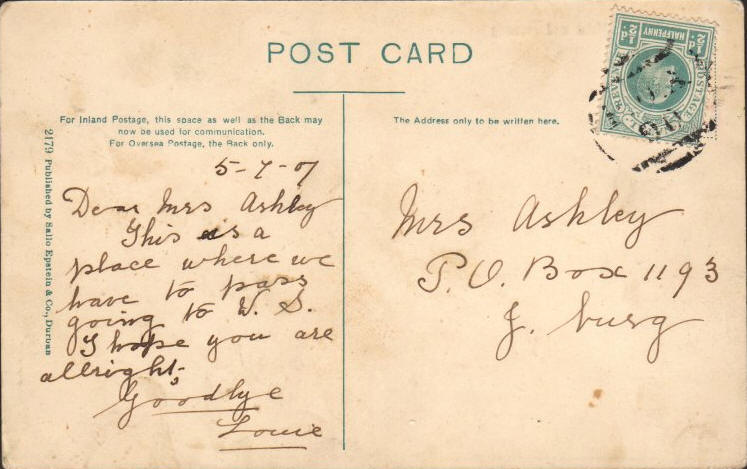 POST CARD
For Inland Postage, this space as well as the Back may
now be used for communication.
For Oversea Postage, the Back only.
The Address only to be written here.
2179 Published by Sallo Epstein & Co., Durban
½d HALFPENNY ½d
POSTAGE
5-7-07
Dear Mrs Ashley
This is a
place where we
have to pass
going to W. S.
I hope you are
allright.
Goodbye
Louie
Mrs Ashley
P.O. Box 1193
J. burg